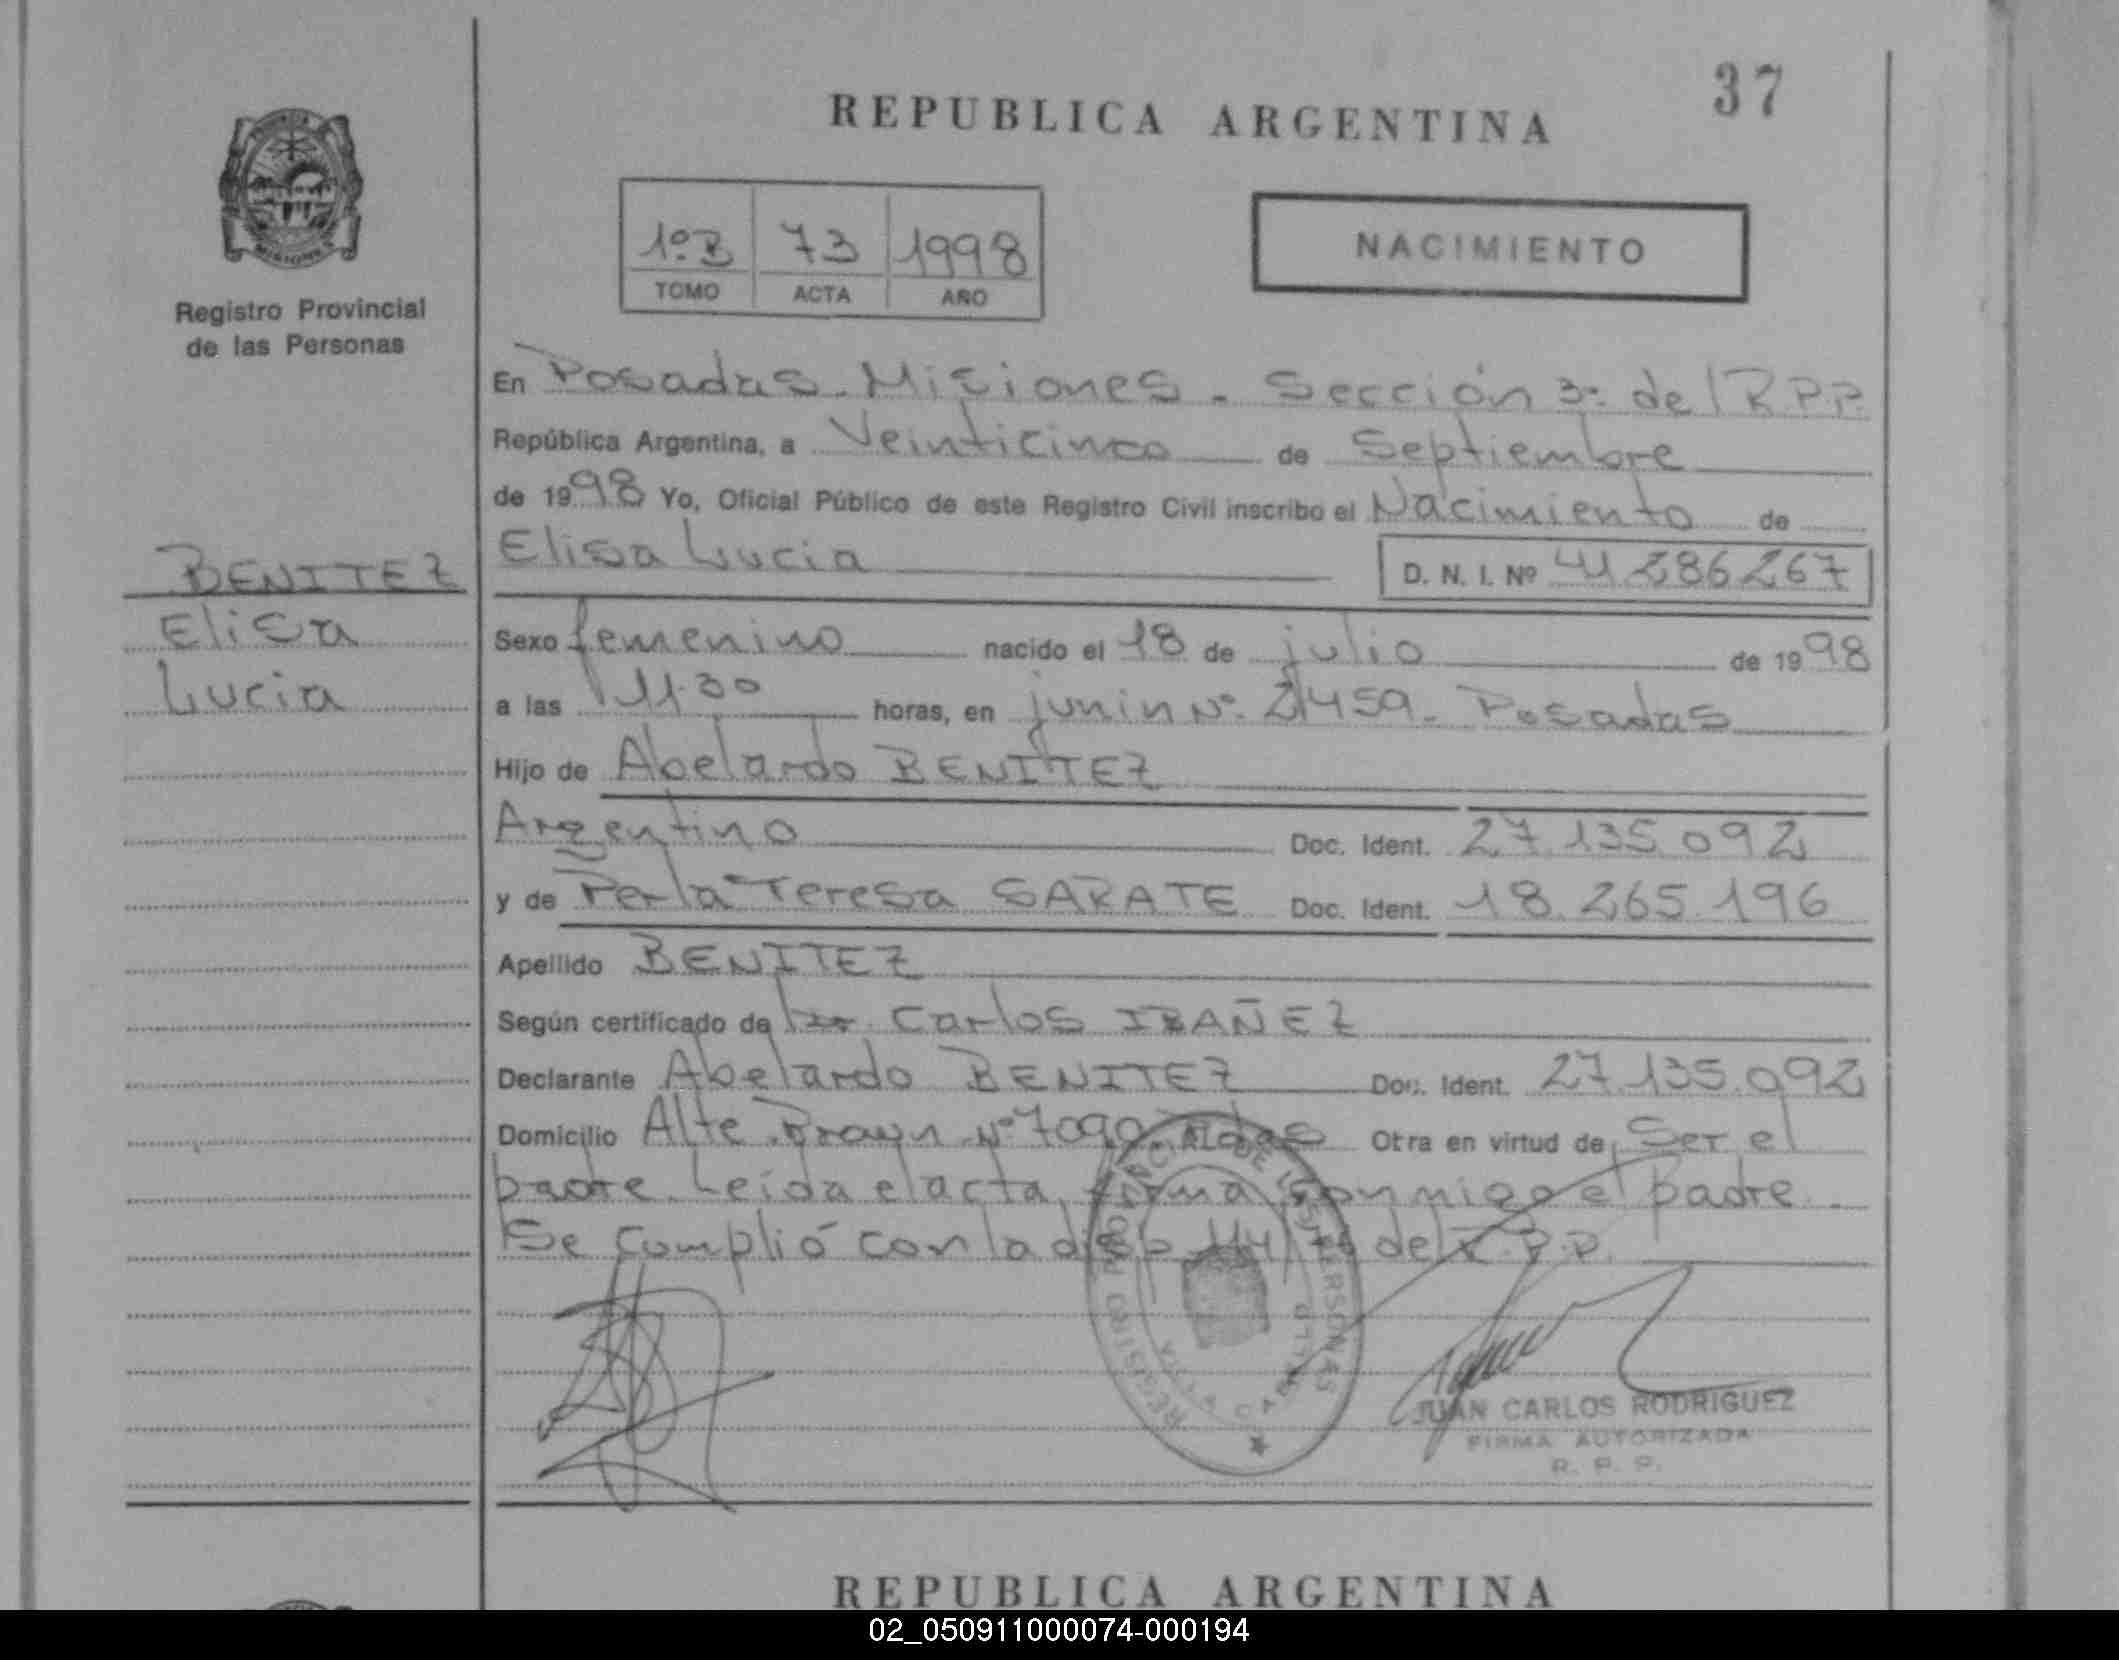 37
REPUBLICA ARGENTINA
1º.B 73 1998
TOMO ACTA AÑO
NACIMIENTO
Registro Provincial
de las Personas
En Posadas. Misiones. Sección 3ª del R.P.P.
República Argentina, a Veinticinco de Septiembre
de 1998 Yo, Oficial Público de este Registro Civil inscribo el Nacimiento de
Elisa Lucia D. N. I. Nº 41 286 267
BENITEZ
Elisa
Lucia
Sexo femenino nacido el 18 de julio de 1998
a las 11.30 horas, en junin Nº. 2459. Posadas
Hijo de Abelardo BENITEZ
Argentino Doc. Ident. 27.135.092
y de Perla Teresa SARATE Doc. Ident. 18.265.196
Apellido BENITEZ
Según certificado de Carlos IBAÑEZ
Declarante Abelardo BENITEZ Doc. Ident. 27.135.092
Domicilio Alte Brown Nº 7090. Pdas Otra en virtud de Ser el
padre. Leida el acta, firma conmigo el padre.
Se cumplió con la del R.P.P.
REGISTRO PROVINCIAL DE LAS PERSONAS
VILLA CABELLO
JUAN CARLOS RODRIGUEZ
FIRMA AUTORIZADA
R. P. P.
REPUBLICA ARGENTINA
02_050911000074-000194